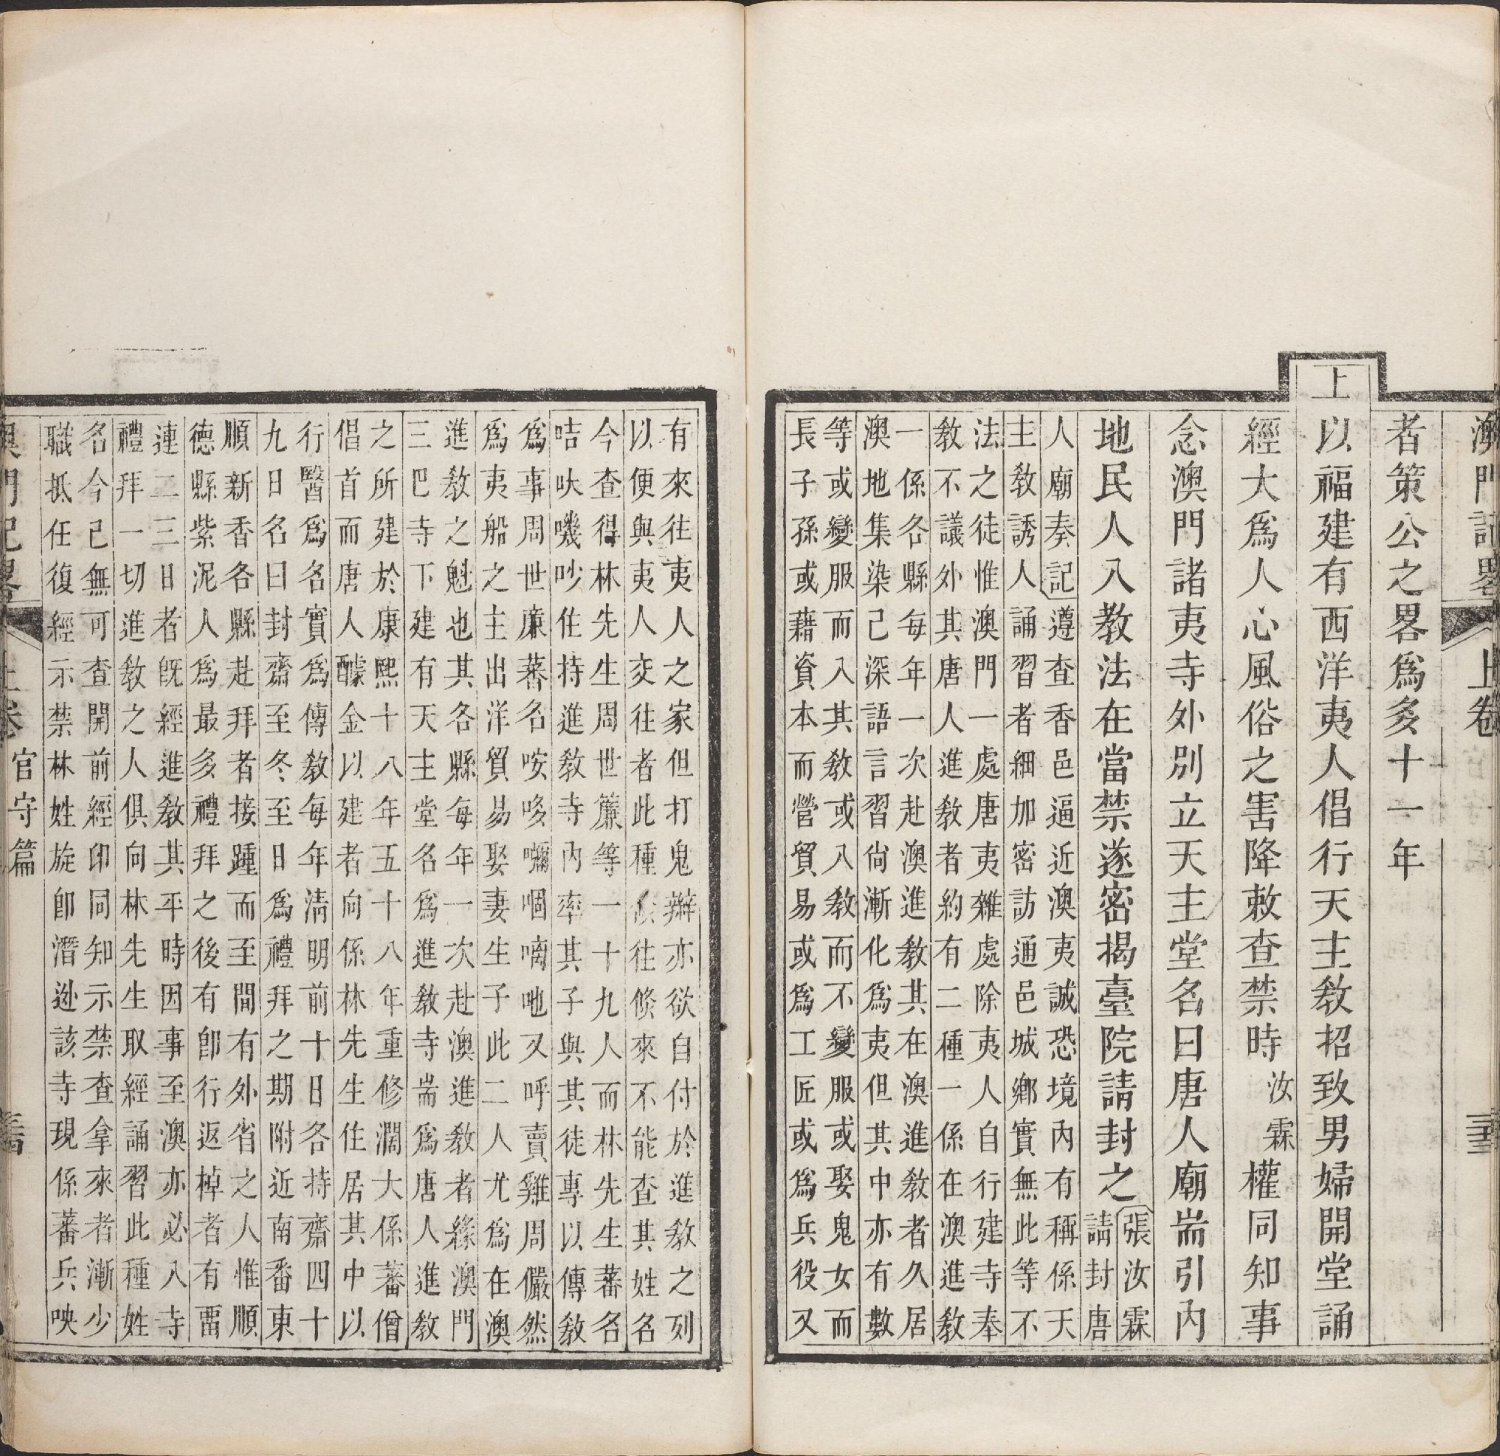 澳門記畧 上卷
者策公之畧爲多十一年
上以福建有西洋夷人倡行天主敎招致男婦開堂誦
經大爲人心風俗之害降敕查禁時汝霖權同知事
念澳門諸夷寺外別立天主堂名曰唐人廟耑引內
地民人入敎法在當禁遂密揭臺院請封之張汝霖
請封唐
人廟奏記遵查香邑逼近澳夷誠恐境內有稱係天
主敎誘人誦習者細加密訪通邑城鄉實無此等不
法之徒惟澳門一處唐夷雜處除夷人自行建寺奉
敎不議外其唐人進敎者約有二種一係在澳進敎
一係各縣每年一次赴澳進敎其在澳進敎者久居
澳地集染己深語言習尙漸化爲夷但其中亦有數
等或變服而入其敎或入敎而不變服或娶鬼女而
長子孫或藉資本而營貿易或爲工匠或爲兵役又
有來往夷人之家但打鬼辮亦欲自付於進敎之列
以便與夷人交往者此種往倐來不能查其姓名
今查得林先生周世簾等一十九人而林先生蕃名
咭吠嘰吵住持進敎寺內率其子與其徒專以傳敎
爲事周世廉蕃名咹哆囑咽喃吔又呼賣雞周儼然
爲夷船之主出洋貿易娶妻生子此二人尤爲在澳
進敎之魁也其各縣每年一次赴澳進敎者緣澳門
三巴寺下建有天主堂名爲進敎寺耑爲唐人進敎
之所建於康熙十八年五十八年重修濶大係蕃僧
倡首而唐人醵金以建者向係林先生住居其中以
行醫爲名實爲傳敎每年淸明前十日各持齋四十
九日名曰封齋至冬至日爲禮拜之期附近南番東
順新香各縣赴拜者接踵而至間有外省之人惟順
德縣紫泥人爲最多禮拜之後有卽行返棹者有畱
連二三日者旣經進敎其平時因事至澳亦必入寺
禮拜一切進敎之人俱向林先生取經誦習此種姓
名今己無可查開前經印同知示禁查拿來者漸少
職抵任復經示禁林姓旋卽潛逃該寺現係蕃兵㕫
澳門記畧 上卷 官守篇